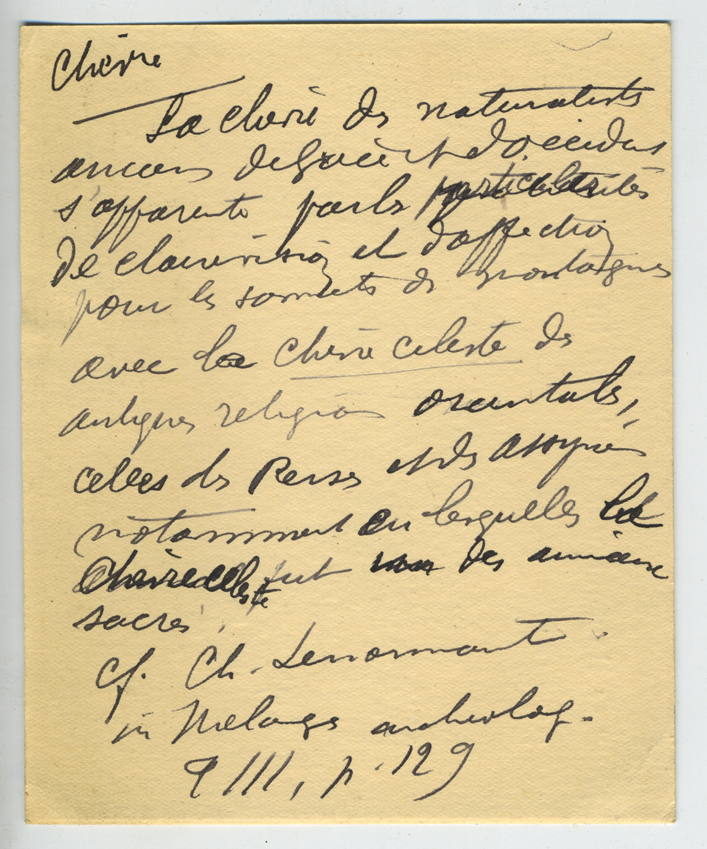 Chèvre
La chèvre des naturalistes
anciens de Grèce et d'occident
s'apparente par les particularités
de clairvision et d'affection
pour les sommets de montagnes
avec la chèvre céleste des
antiques religions orientales,
celles des Perses et des Assyriens
notamment en lesquelles la
Chèvre céleste fut un des animaux
sacrés.
cf. Ch. Lenormant.
in Mélanges archéolog.
T III, p. 129